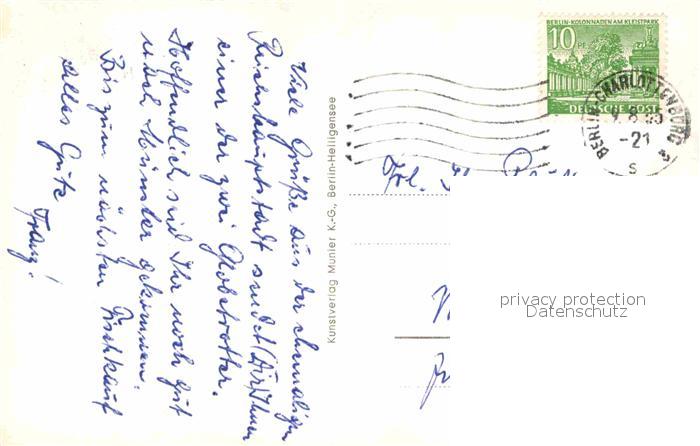 Viele Grüße aus der ehemaligen
Reichshauptstadt sendet (Dir) Ihnen
einer der zwei Globetrotter.
Hoffendlich seid Ihr noch gut
nach Münster gekommen.
Bis zum nächsten Fischkauf
alles Gute
Franz!
Kunstverlag Munier K.-G., Berlin-Heiligensee
BERLIN-KOLONNADEN AM KLEISTPARK
10 PF
DEUTSCHE POST
BERLIN-CHARLOTTENBURG 2
-21
s
Frl.
privacy protection
Datenschutz